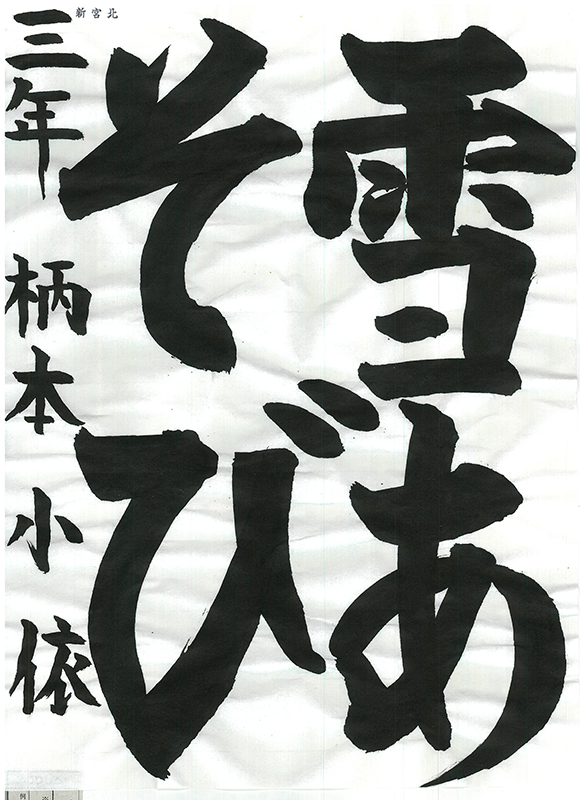 雪あ
そび
三年 柄本小依
北宮新